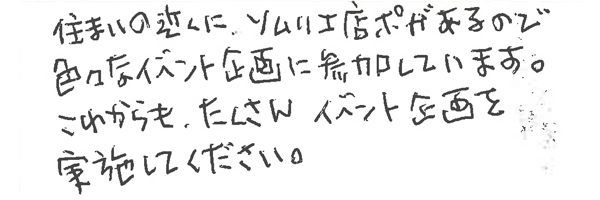 住まいの近くに、ソムリエ店ポがあるので
色々なイベント企画に参加しています。
これからも、たくさん イベント企画を
実施してください。